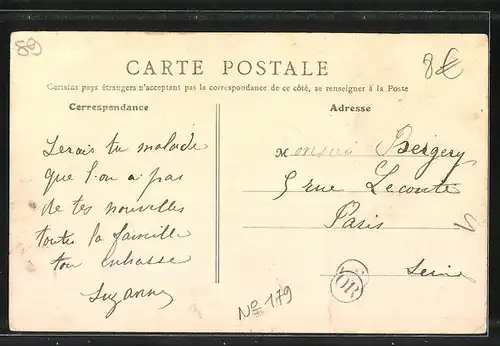 89
8€
CARTE POSTALE
Certains pays étrangers n'acceptant pas la correspondance de ce côté, se renseigner à la Poste
Correspondance
Adresse
Serais tu malade
que l'on a pas
de tes nouvelles
toutes la famille
t'embrasse
Suzanne
Monsieur Bergery
5 rue Leconte
Paris
Seine
OR
No 179